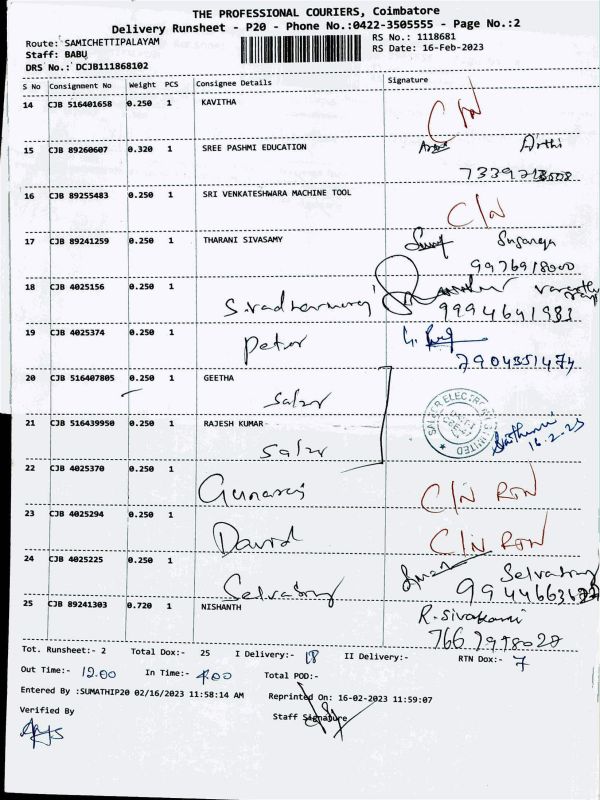 THE PROFESSIONAL COURIERS, Coimbatore
Delivery Runsheet - P20 - Phone No.:0422-3505555 - Page No.:2
Route: SAMICHETTIPALAYAM RS No.: 1118681
Staff: BABU RS Date: 16-Feb-2023
DRS No.: DCJB111868102
S No Consignment No Weight PCS Consignee Details Signature
14 CJB 516401658 0.250 1 KAVITHA C/N
15 CJB 89260607 0.320 1 SREE PASHMI EDUCATION Arthi
16 CJB 89255483 0.250 1 SRI VENKATESHWARA MACHINE TOOL C/N
17 CJB 89241259 0.250 1 THARANI SIVASAMY
9976918000
18 CJB 4025156 0.250 1
9994641983
19 CJB 4025374 0.250 1 Peter
7904351474
20 CJB 516407805 0.250 1 GEETHA
Salzer
21 CJB 516439950 0.250 1 RAJESH KUMAR
Salzer 16.2.23
22 CJB 4025370 0.250 1 Gunaraj C/N RTN
23 CJB 4025294 0.250 1 David C/N RTN
24 CJB 4025225 0.250 1
25 CJB 89241303 0.720 1 NISHANTH R. Sivakami
Tot. Runsheet:- 2 Total Dox:- 25 I Delivery:- 18 II Delivery:- RTN Dox:- 7
Out Time:- 12.00 In Time:- 4.00 Total POD:-
Entered By :SUMATHIP20 02/16/2023 11:58:14 AM Reprinted On: 16-02-2023 11:59:07
Verified By Staff Signature